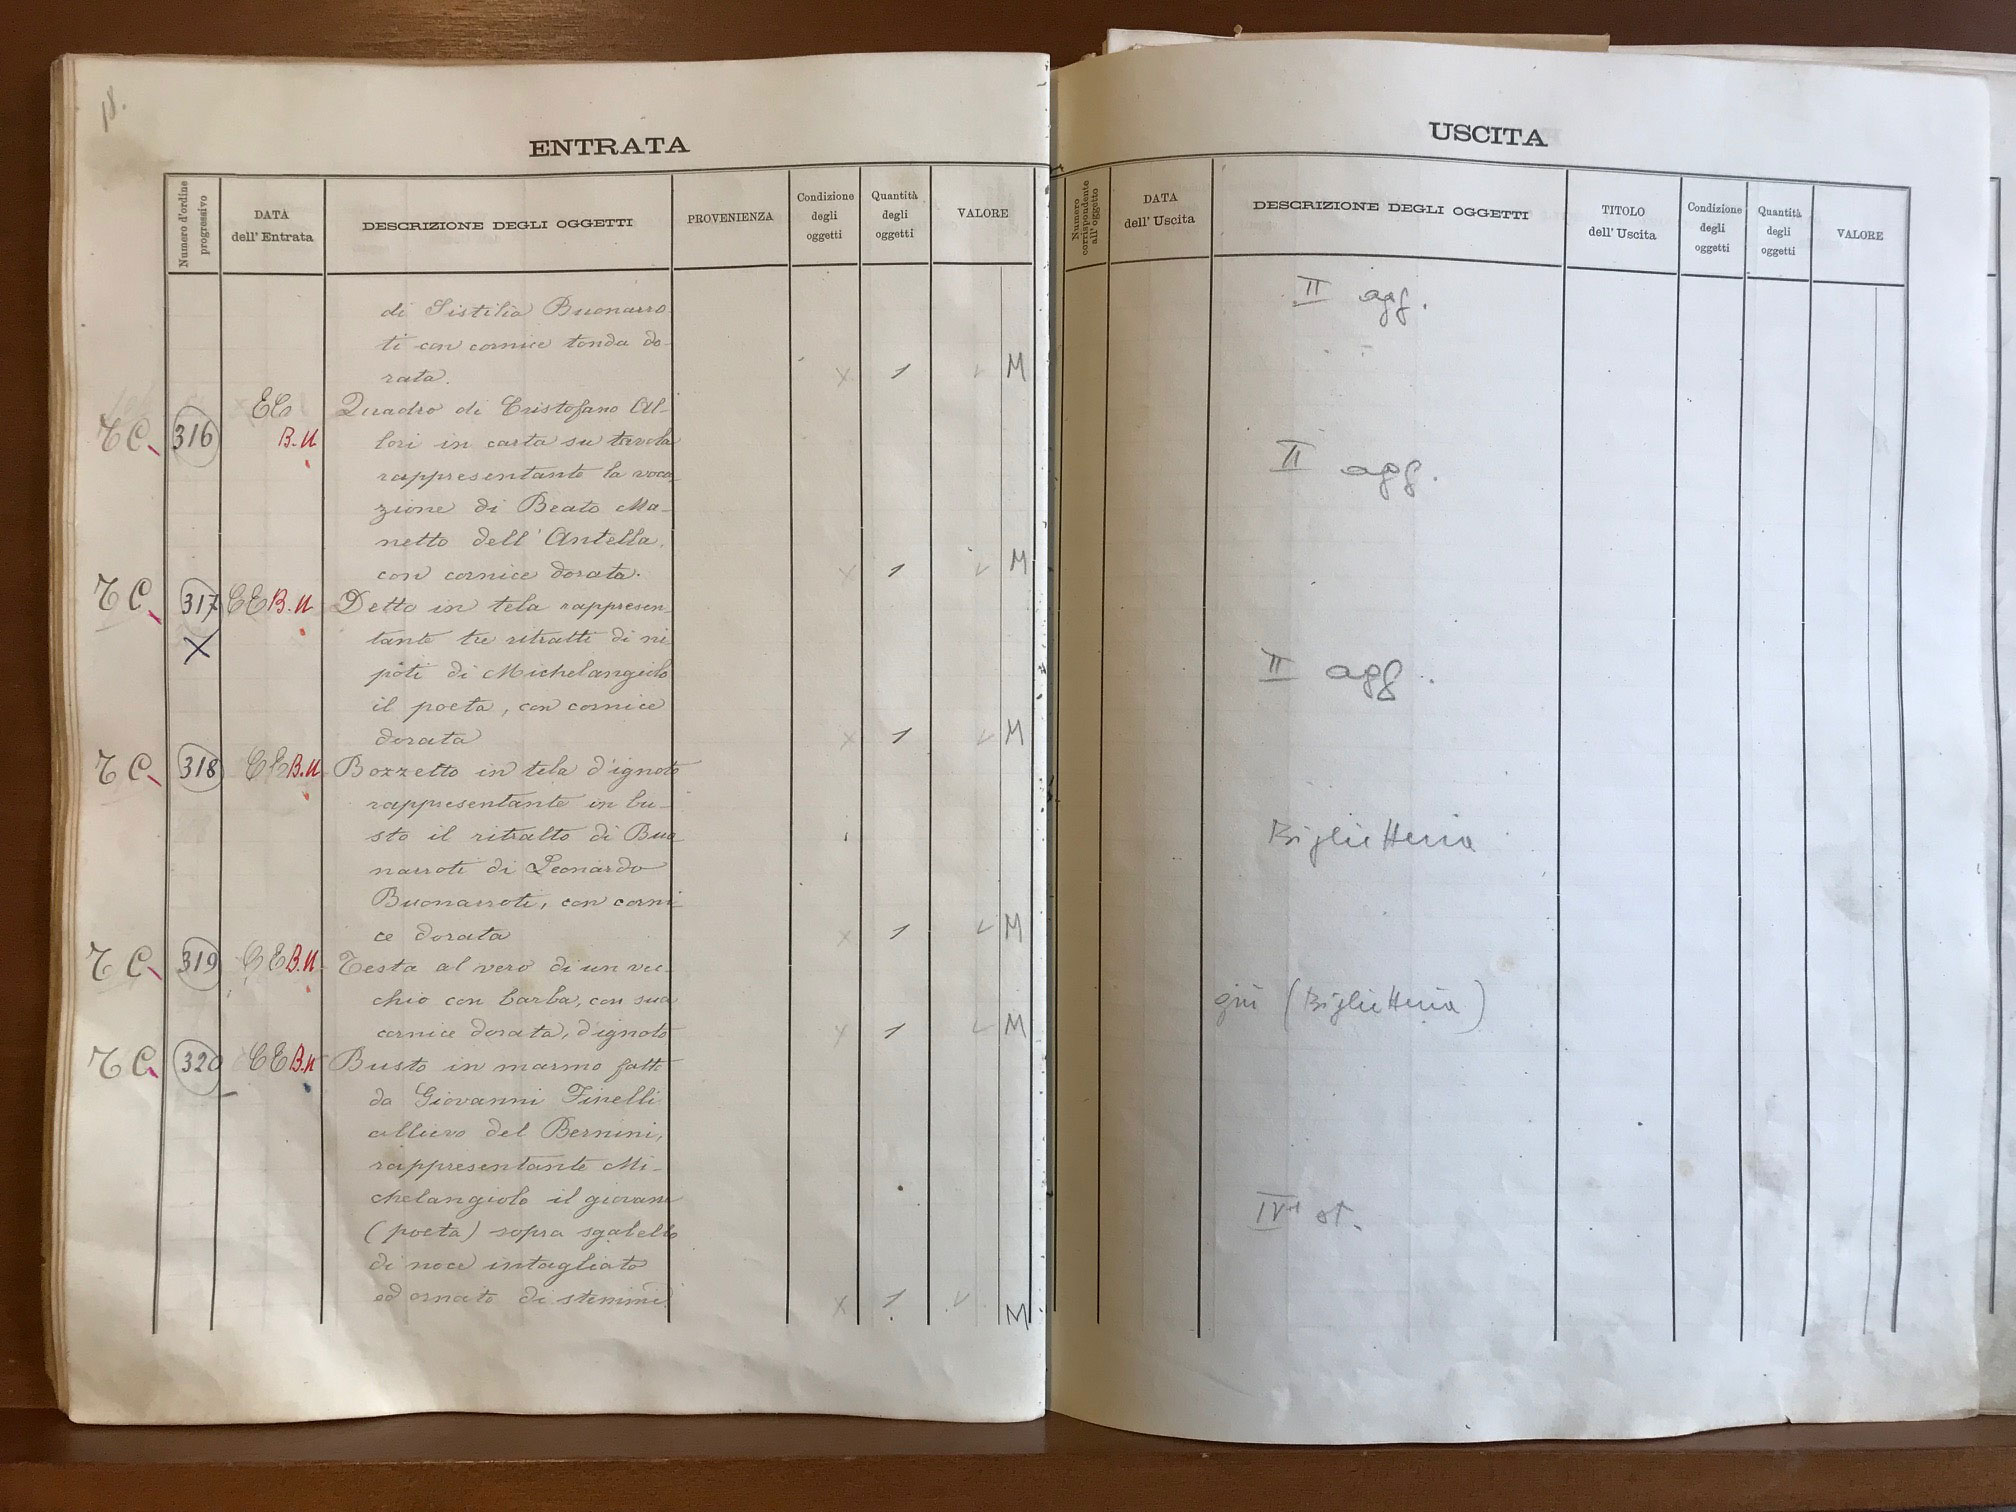 18.
ENTRATA
Numero d'ordine progressivo
DATA dell' Entrata
DESCRIZIONE DEGLI OGGETTI
PROVENIENZA
Condizione degli oggetti
Quantità degli oggetti
VALORE
di Sistilia Buonarro
ti con cornice tonda do-
rata. x 1 v M
Quadro di Cristofano Al-
T C 316 B.U lori in carta su tavola
rappresentante la voca
zione di Beato Ma-
netto dell'Antella,
con cornice dorata. x 1 v M
T C 317 CE B.U Detto in tela rappresen
X tante tre ritratti di ni
poti di Michelangiolo
il poeta, con cornice
dorata x 1 v M
T C 318 CE B.U Bozzetto in tela d'ignoto
rappresentante in bu-
sto il ritratto di Buo
narroti di Leonardo
Buonarroti, con corni
ce dorata x 1 v M
T C 319 CE B.U Testa al vero di un vec-
chio con barba, con sua
cornice dorata, d'ignoto x 1 v M
T C 320 CE B.U Busto in marmo fatto
da Giovanni Finelli
allievo del Bernini,
rappresentante Mi-
chelangiolo il giovane
(poeta) sopra sgabello
di noce intagliato
ed ornato di stemmi x 1 v M
USCITA
Numero corrispondente all'oggetto
DATA dell' Uscita
DESCRIZIONE DEGLI OGGETTI
TITOLO dell' Uscita
Condizione degli oggetti
Quantità degli oggetti
VALORE
II agg.
II agg.
II agg.
Biglietteria
giù (Biglietteria)
IVa st.